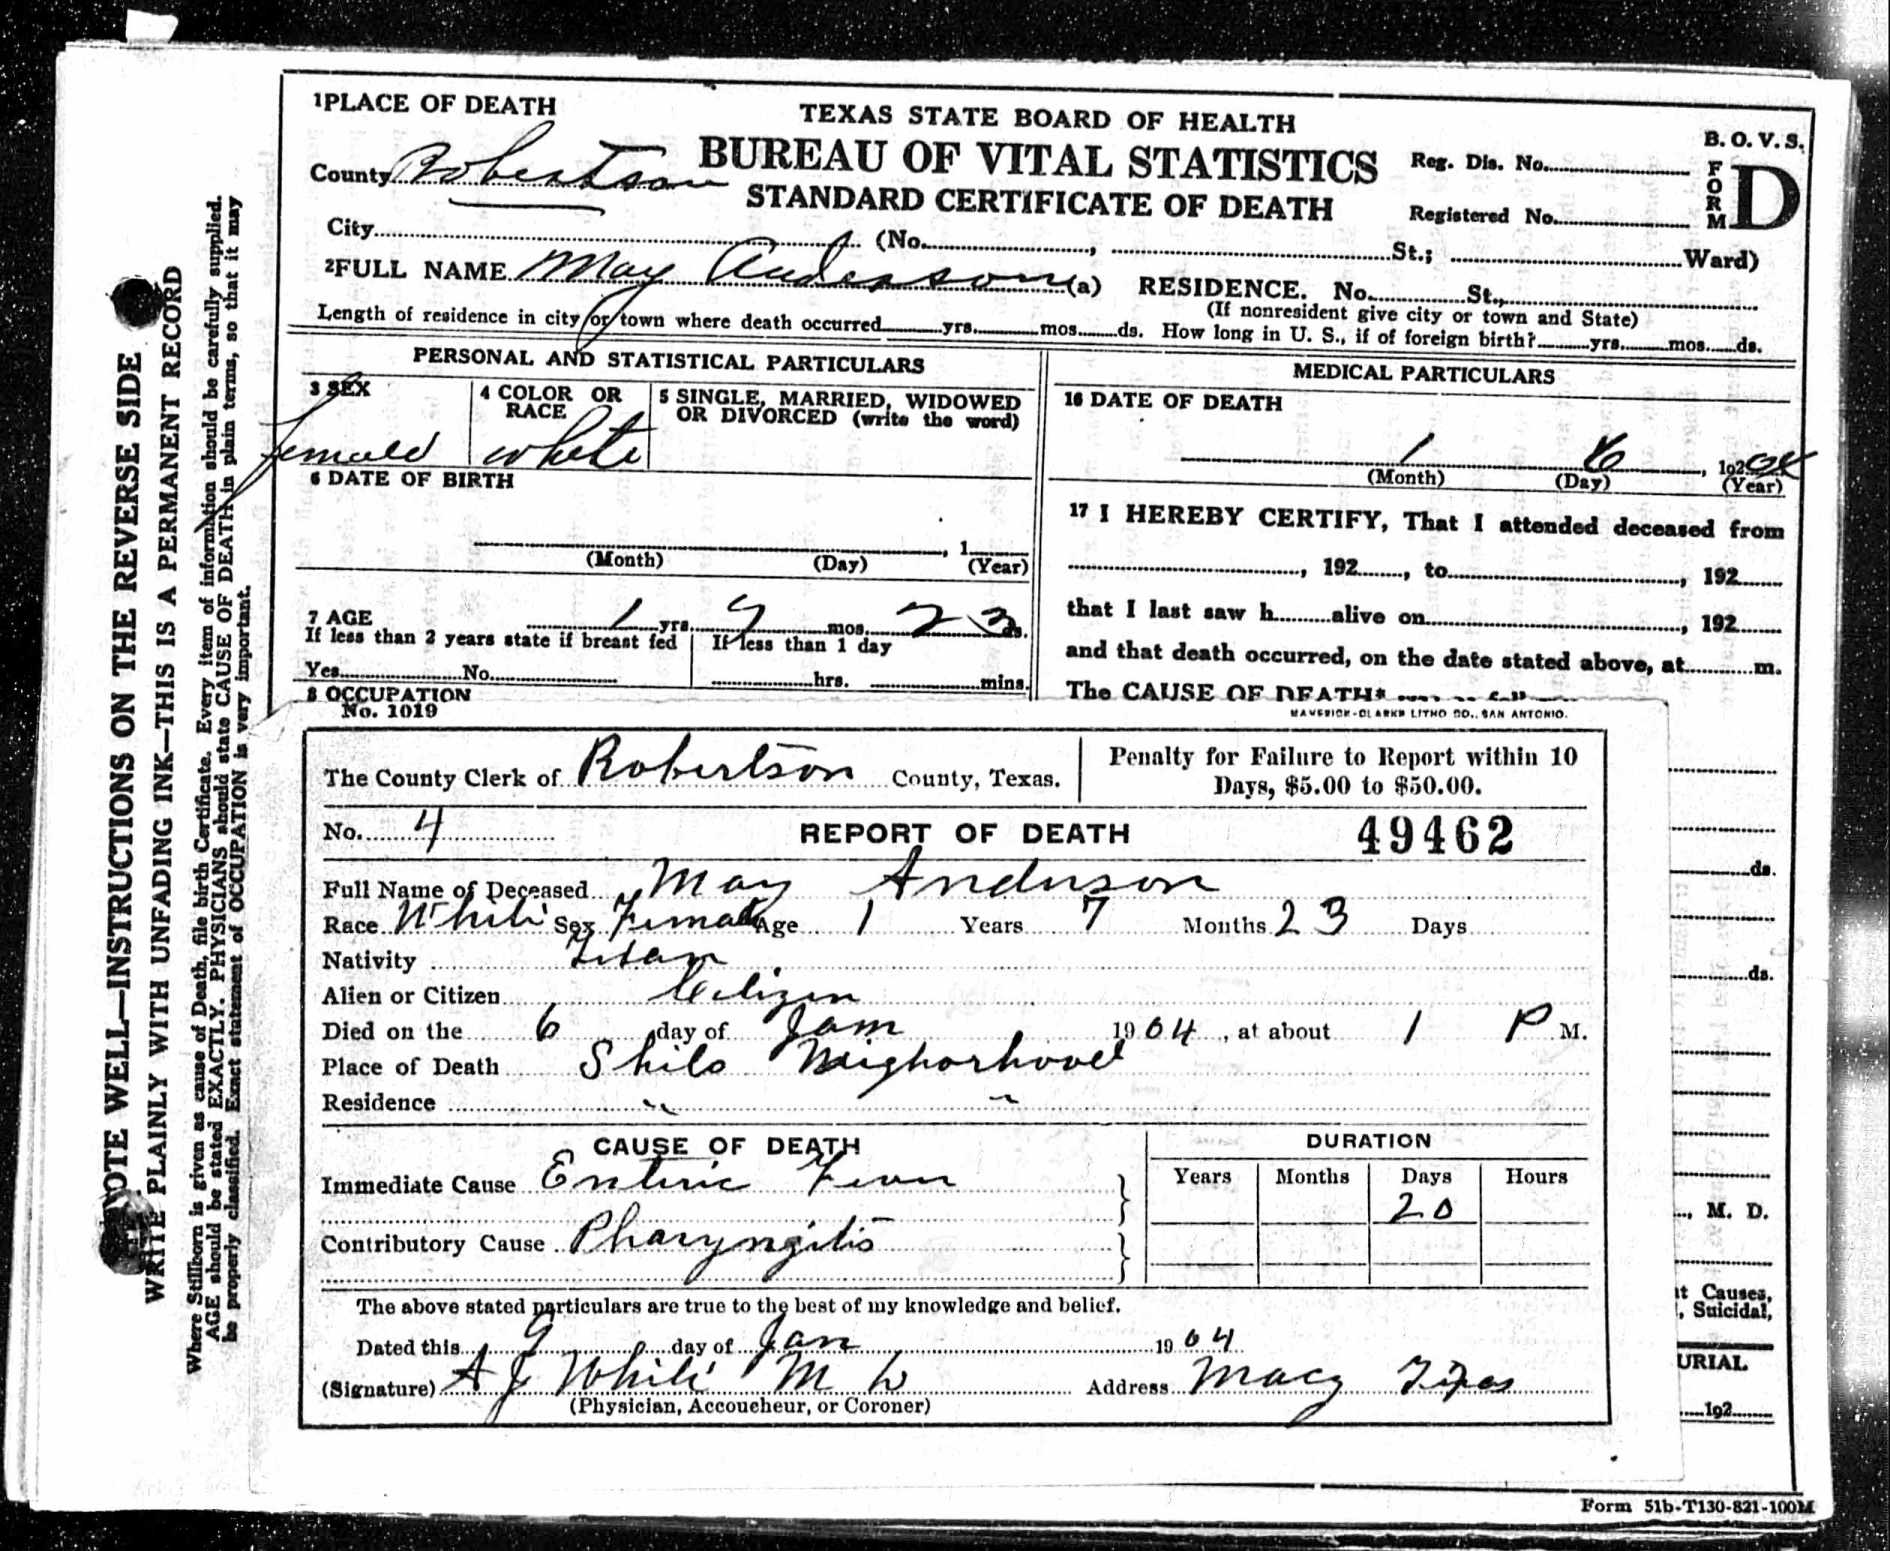 1 PLACE OF DEATH
TEXAS STATE BOARD OF HEALTH
B. O. V. S.
BUREAU OF VITAL STATISTICS
STANDARD CERTIFICATE OF DEATH
Reg. Dis. No.
Registered No.
FORM D
County Robertson
City (No. , St.; Ward)
2 FULL NAME May Anderson (a) RESIDENCE. No. St.,
(If nonresident give city or town and State)
Length of residence in city or town where death occurred yrs. mos. ds. How long in U. S., if of foreign birth? yrs. mos. ds.
PERSONAL AND STATISTICAL PARTICULARS
3 SEX
female
4 COLOR OR RACE
white
5 SINGLE, MARRIED, WIDOWED
OR DIVORCED (write the word)
6 DATE OF BIRTH
, 1
(Month) (Day) (Year)
7 AGE 1 yrs. 7 mos. 23 ds.
If less than 2 years state if breast fed
Yes No
If less than 1 day
hrs. mins.
8 OCCUPATION
MEDICAL PARTICULARS
16 DATE OF DEATH
1 6 , 192 04
(Month) (Day) (Year)
17 I HEREBY CERTIFY, That I attended deceased from
, 192 , to , 192
that I last saw h alive on , 192
and that death occurred, on the date stated above, at m.
The CAUSE OF DEATH*
No. 1019
MAVERICK-CLARKE LITHO CO., SAN ANTONIO.
The County Clerk of Robertson County, Texas.
Penalty for Failure to Report within 10
Days, $5.00 to $50.00.
No. 4 REPORT OF DEATH 49462
Full Name of Deceased May Anderson
Race White Sex Female Age 1 Years 7 Months 23 Days
Nativity
Alien or Citizen Citizen
Died on the 6 day of Jan 1904, at about 1 P M.
Place of Death Shilo Neighorhood
Residence " "
CAUSE OF DEATH
DURATION
Years Months Days Hours
Immediate Cause Enteric Fever
20
Contributory Cause Pharyngitis
The above stated particulars are true to the best of my knowledge and belief.
Dated this 9 day of Jan 1904
(Signature) A J White M D Address Macy Texas
(Physician, Accoucheur, or Coroner)
ds.
ds.
, M. D.
t Causes,
, Suicidal,
URIAL
192
Form 51b-T130-821-100M
NOTE WELL—INSTRUCTIONS ON THE REVERSE SIDE
WRITE PLAINLY WITH UNFADING INK—THIS IS A PERMANENT RECORD
Where Stillborn is given as cause of Death, file birth Certificate. Every item of information should be carefully supplied.
AGE should be stated EXACTLY. PHYSICIANS should state CAUSE OF DEATH in plain terms, so that it may
be properly classified. Exact statement of OCCUPATION is very important.